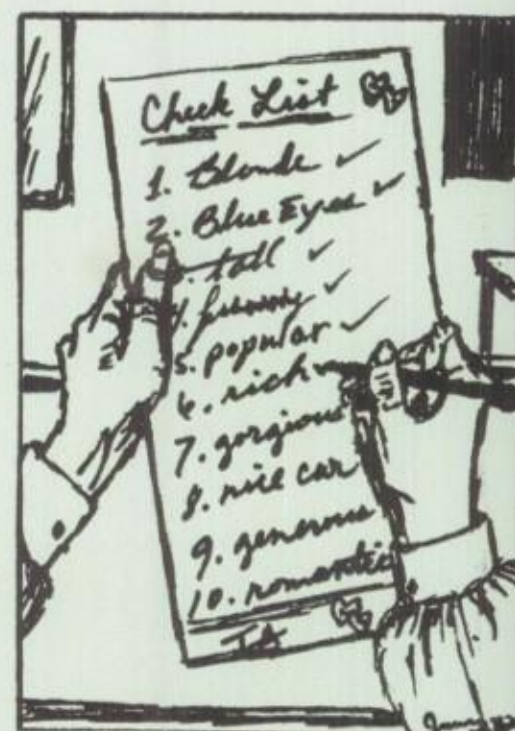 Check List
1. Blonde ✓
2. Blue Eyes ✓
. tall ✓
4. funny ✓
5. popular ✓
6. rich
7. gorgious
8. nice car
9. generous
10. romantic